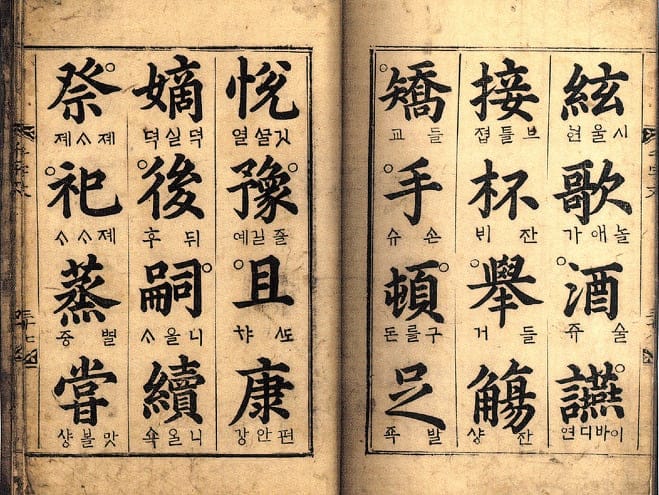 絃
시울현
歌
놀애가
酒
술쥬
讌
이바디연
接
브틀졉
杯
잔ᄇᆡ
舉
들거
觴
잔샹
矯
들교
手
손슈
頓
구를돈
足
발죡
悅
열
豫
즐길예
且
ᄯᅩ챠
康
편안강
嫡
뎍실뎍
後
뒤후
嗣
니올ᄉᆞ
續
니올쇽
祭
졔ᄉᆞ졔
祀
졔ᄉᆞᄉᆞ
蒸
증
嘗
맛볼샹